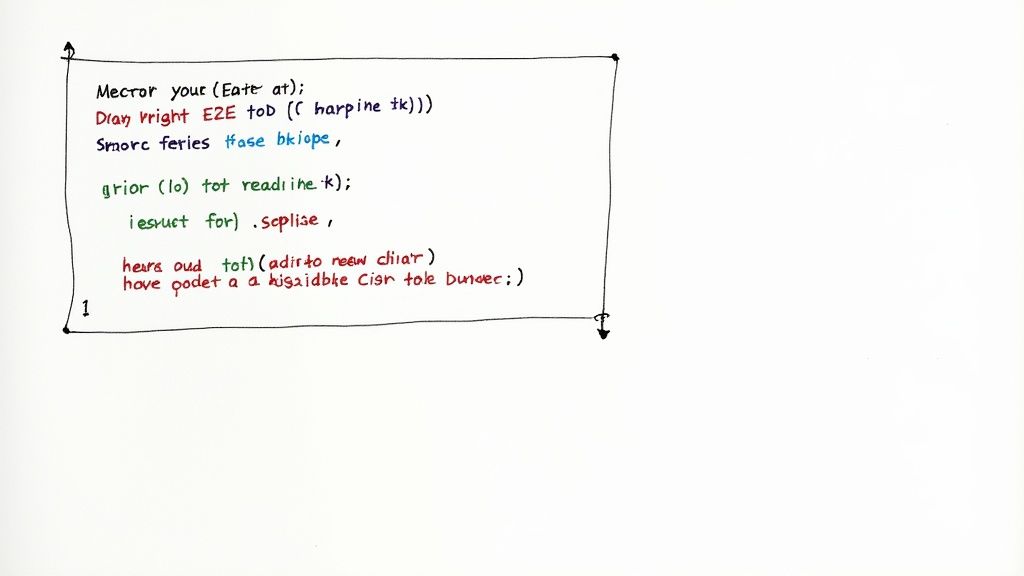 Mecror your (Eate at);
Dray vright E2E toD (( harpine tk)))
Smorc feries ffase bkiope,
grior (lo) tot readline k);
iesruct for) .scplise,
hears oud tot) (adirto neew chiar)
hove podet a a Cisr tole
1